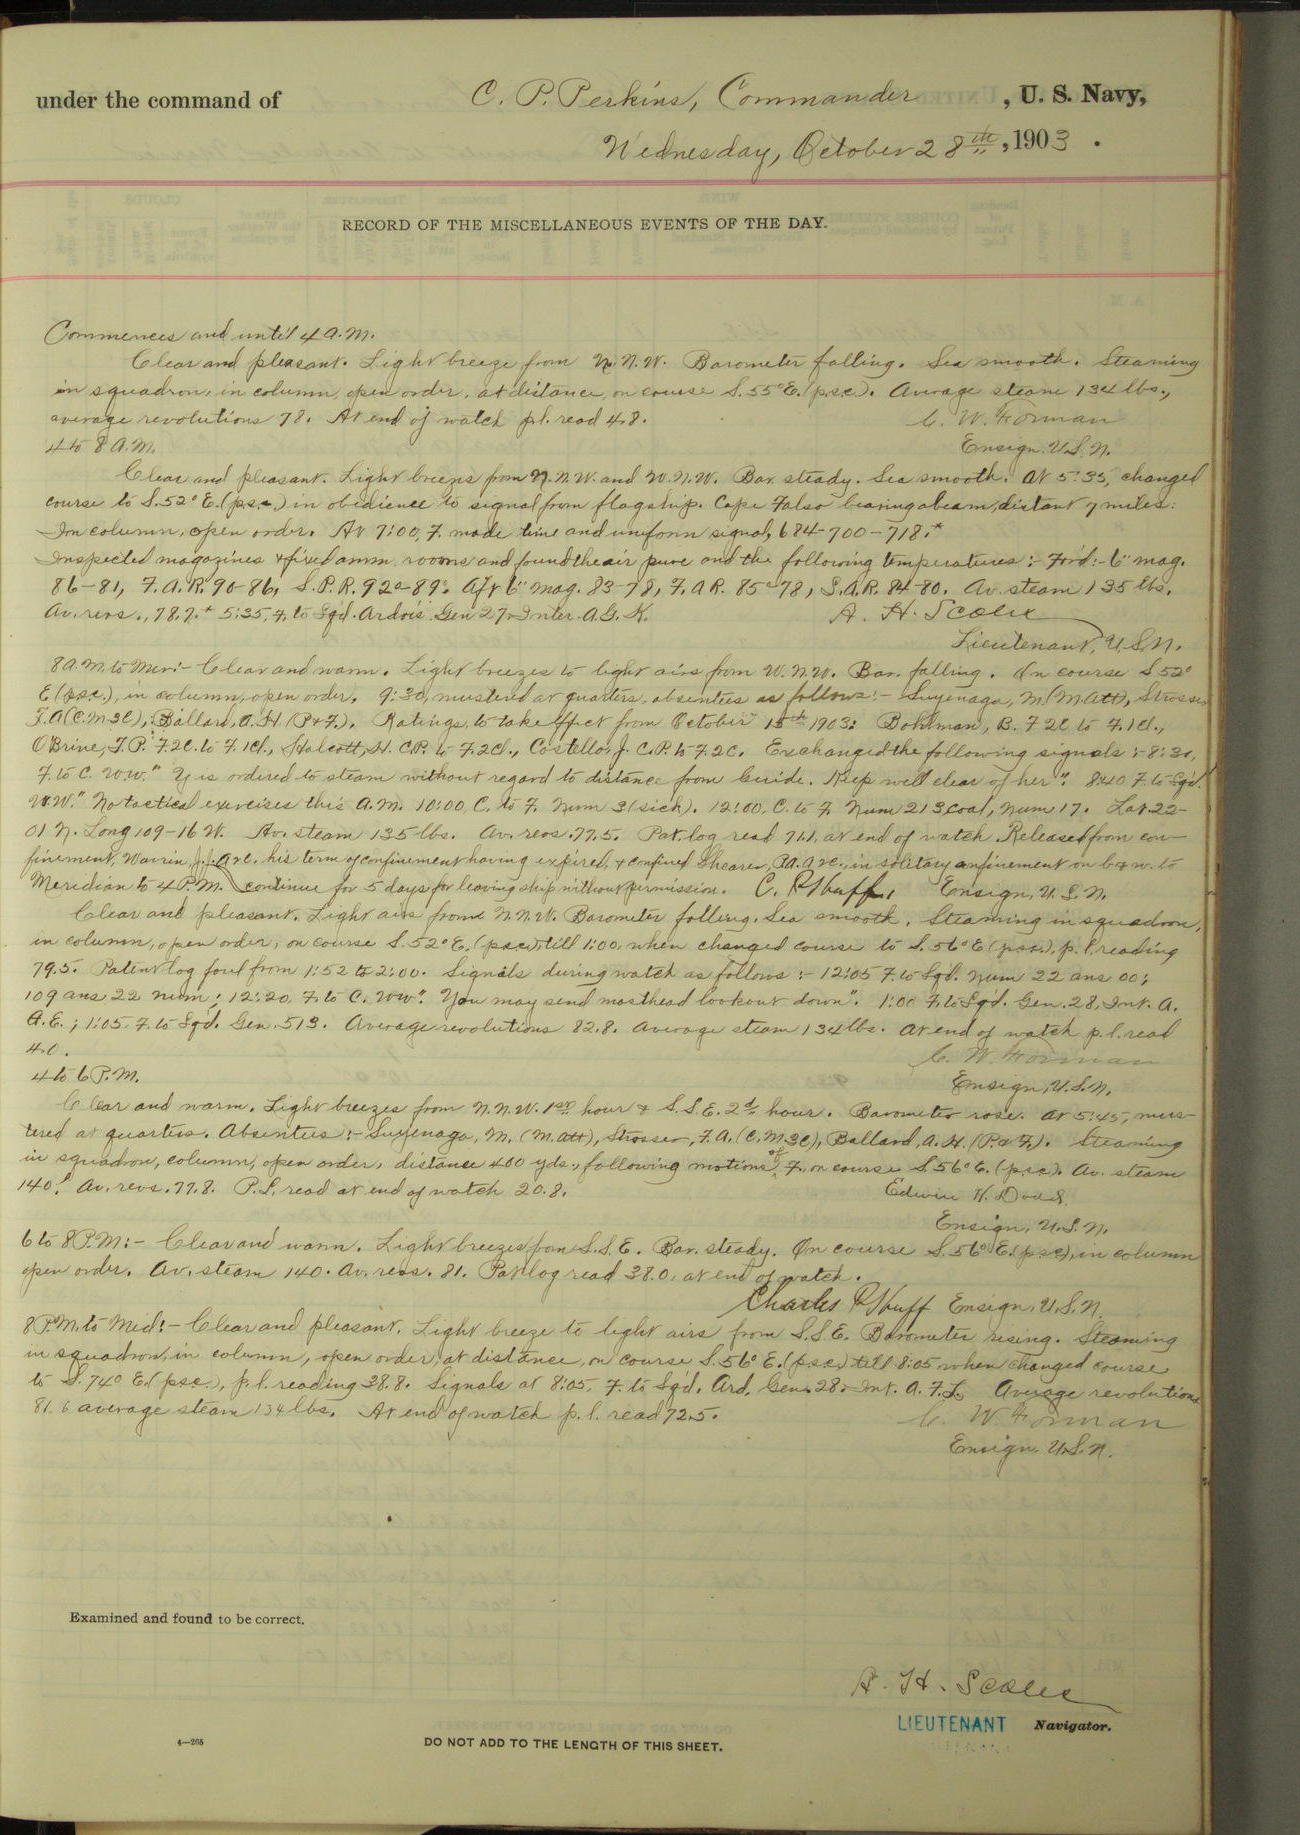 under the command of C. P. Perkins, Commander, U. S. Navy,
Wednesday, October 28th, 1903.
RECORD OF THE MISCELLANEOUS EVENTS OF THE DAY.
Commences and until 4 A.M.
Clear and pleasant. Light breeze from N.N.W. Barometer falling. Sea smooth. Steaming
in squadron, in column, open order, at distance, on course S.55°E.(p.s.c.). Average steam 134 lbs.,
average revolutions 78. At end of watch p.l. read 4.8. C. W. Forman
4 to 8 A.M. Ensign, U.S.N.
Clear and pleasant. Light breezes from N.N.W. and W.N.W. Bar. steady. Sea smooth. At 5:35, changed
course to S.52°E.(p.s.c.) in obedience to signal from flagship. Cape Falso bearing abeam, distant 7 miles.
In column, open order. At 7:00, F. made time and uniform signal, 684-700-718.*
Inspected magazines & fixed amm. rooms and found the air pure and the following temperatures:- For'd:- 6" mag.
86-81, F.A.R. 90-86, S.P.R. 92-89. Aft 6" mag. 83-78, F.A.R. 85-78, S.A.R. 84-80. Av. steam 135 lbs.
Av. revs., 78.7.* 5:35, F. to Sqd. Ardois Gen 27 Inter. A.G.K. A. H. Scales
Lieutenant, U.S.N.
8 A.M. to Mer:- Clear and warm. Light breezes to light airs from W.N.W. Bar. falling. On course S 52°
E (p.s.c.), in column, open order. 9:30, mustered at quarters, absentees as follows:- Suyenaga, M. (M Att), Strosser,
F.A (C.M 3C), Ballard, A. H (P&F.). Ratings to take effect from October 15th 1903: Bohlman, B. F 2C to F. 1Cl.,
O'Brine, T.P. F.2C. to F. 1Cl., Halcott, H. C.P. to F.2Cl., Costello, J. C.P. to F.2C. Exchanged the following signals:- 8:30,
F. to C. W.W. "Y is ordered to steam without regard to distance from Guide. Keep well clear of her". 8:40 F. to Sqd.
W.W. "No tactical exercises this A.M. 10:00 C. to F. Num 3 (sick). 12:00. C. to F. Num 213, coal, num 17. Lat 22-
01 N. Long 109-16 W. Av. steam 135 lbs. Av. revs. 77.5. Pat. log read 71.1, at end of watch. Released from con-
finement, J.J. his term of confinement having expired, & confined Shearer, in solitary confinement on b & w. to
Meridian to 4 P.M. continue for 5 days for leaving ship without permission. C. R. Huff, Ensign, U.S.N.
Clear and pleasant. Light airs from N.N.W. Barometer falling. Sea smooth. Steaming in squadron,
in column, open order, on course S.52°E. (p.s.c.) till 1:00, when changed course to S.56°E (p.s.c.), p.l. reading
79.5. Patent log foul from 1:52 to 2:00. Signals during watch as follows:- 12:05 F. to Sqd. num 22 ans 00;
109 ans 22 num; 12:20, F. to C. W.W. "You may send masthead lookout down". 1:00 F. to Sqd. Gen. 28, Int. A.
A.E.; 1:05. F. to Sqd. Gen. 513. Average revolutions 82.8. Average steam 134 lbs. At end of watch p.l. read
4.0. C. W. Forman
4 to 6 P.M. Ensign, U.S.N.
Clear and warm. Light breezes from N.N.W. 1st hour & S.S.E. 2d hour. Barometer rose. At 5:45, mus-
tered at quarters. Absentees:- Suyenaga, M. (M. Att), Strosser, F.A. (C.M 3C), Ballard, A. H. (P & F.). Steaming
in squadron, column, open order, distance 400 yds., following motions of F. on course S.56°E. (p.s.c). Av. steam
140. Av. revs. 77.8. P.L. read at end of watch 20.8. Edwin H. Dodd.
Ensign, U.S.N.
6 to 8 P.M:- Clear and warm. Light breezes from S.S.E. Bar. steady. On course S.56°E.(p.s.c), in column
open order. Av. steam 140. Av. revs. 81. Pat. log read 38.0, at end of watch.
Charles R Huff Ensign, U.S.N.
8 P.M. to Mid:- Clear and pleasant. Light breeze to light airs from S.S.E. Barometer rising. Steaming
in squadron, in column, open order, at distance, on course S.56°E.(p.s.c.) till 8:05 when changed course
to S.74°E.(p.s.c.), p.l. reading 38.8. Signals at 8:05, F. to Sqd. Ard. Gen. 28, Int. A.F.L. Average revolutions
81.6 average steam 134 lbs. At end of watch p.l. read 72.5. C. W. Forman
Ensign. U.S.N.
Examined and found to be correct.
A. H. Scales
LIEUTENANT Navigator.
4—205 DO NOT ADD TO THE LENGTH OF THIS SHEET.